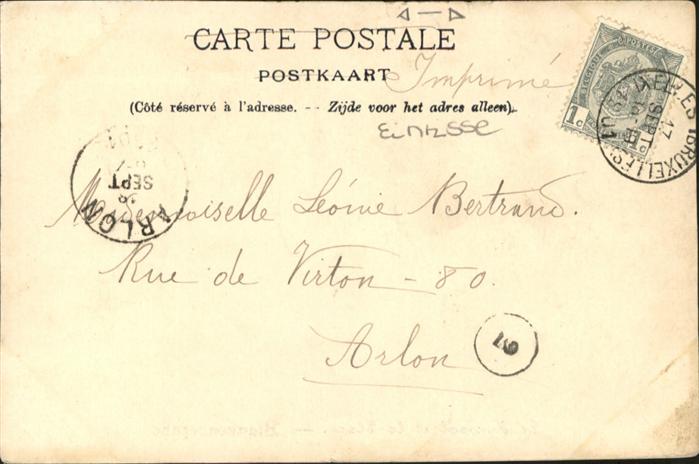 CARTE POSTALE
POSTKAART
Imprimé
(Côté réservé à l'adresse. -- Zijde voor het adres alleen).
BELGIQUE POSTES
1c 1c
IXELLES (BRUXELLES)
17 SEPT
ARLON
SEPT
Mademoiselle Léonie Bertrand.
Rue de Virton - 80.
Arlon